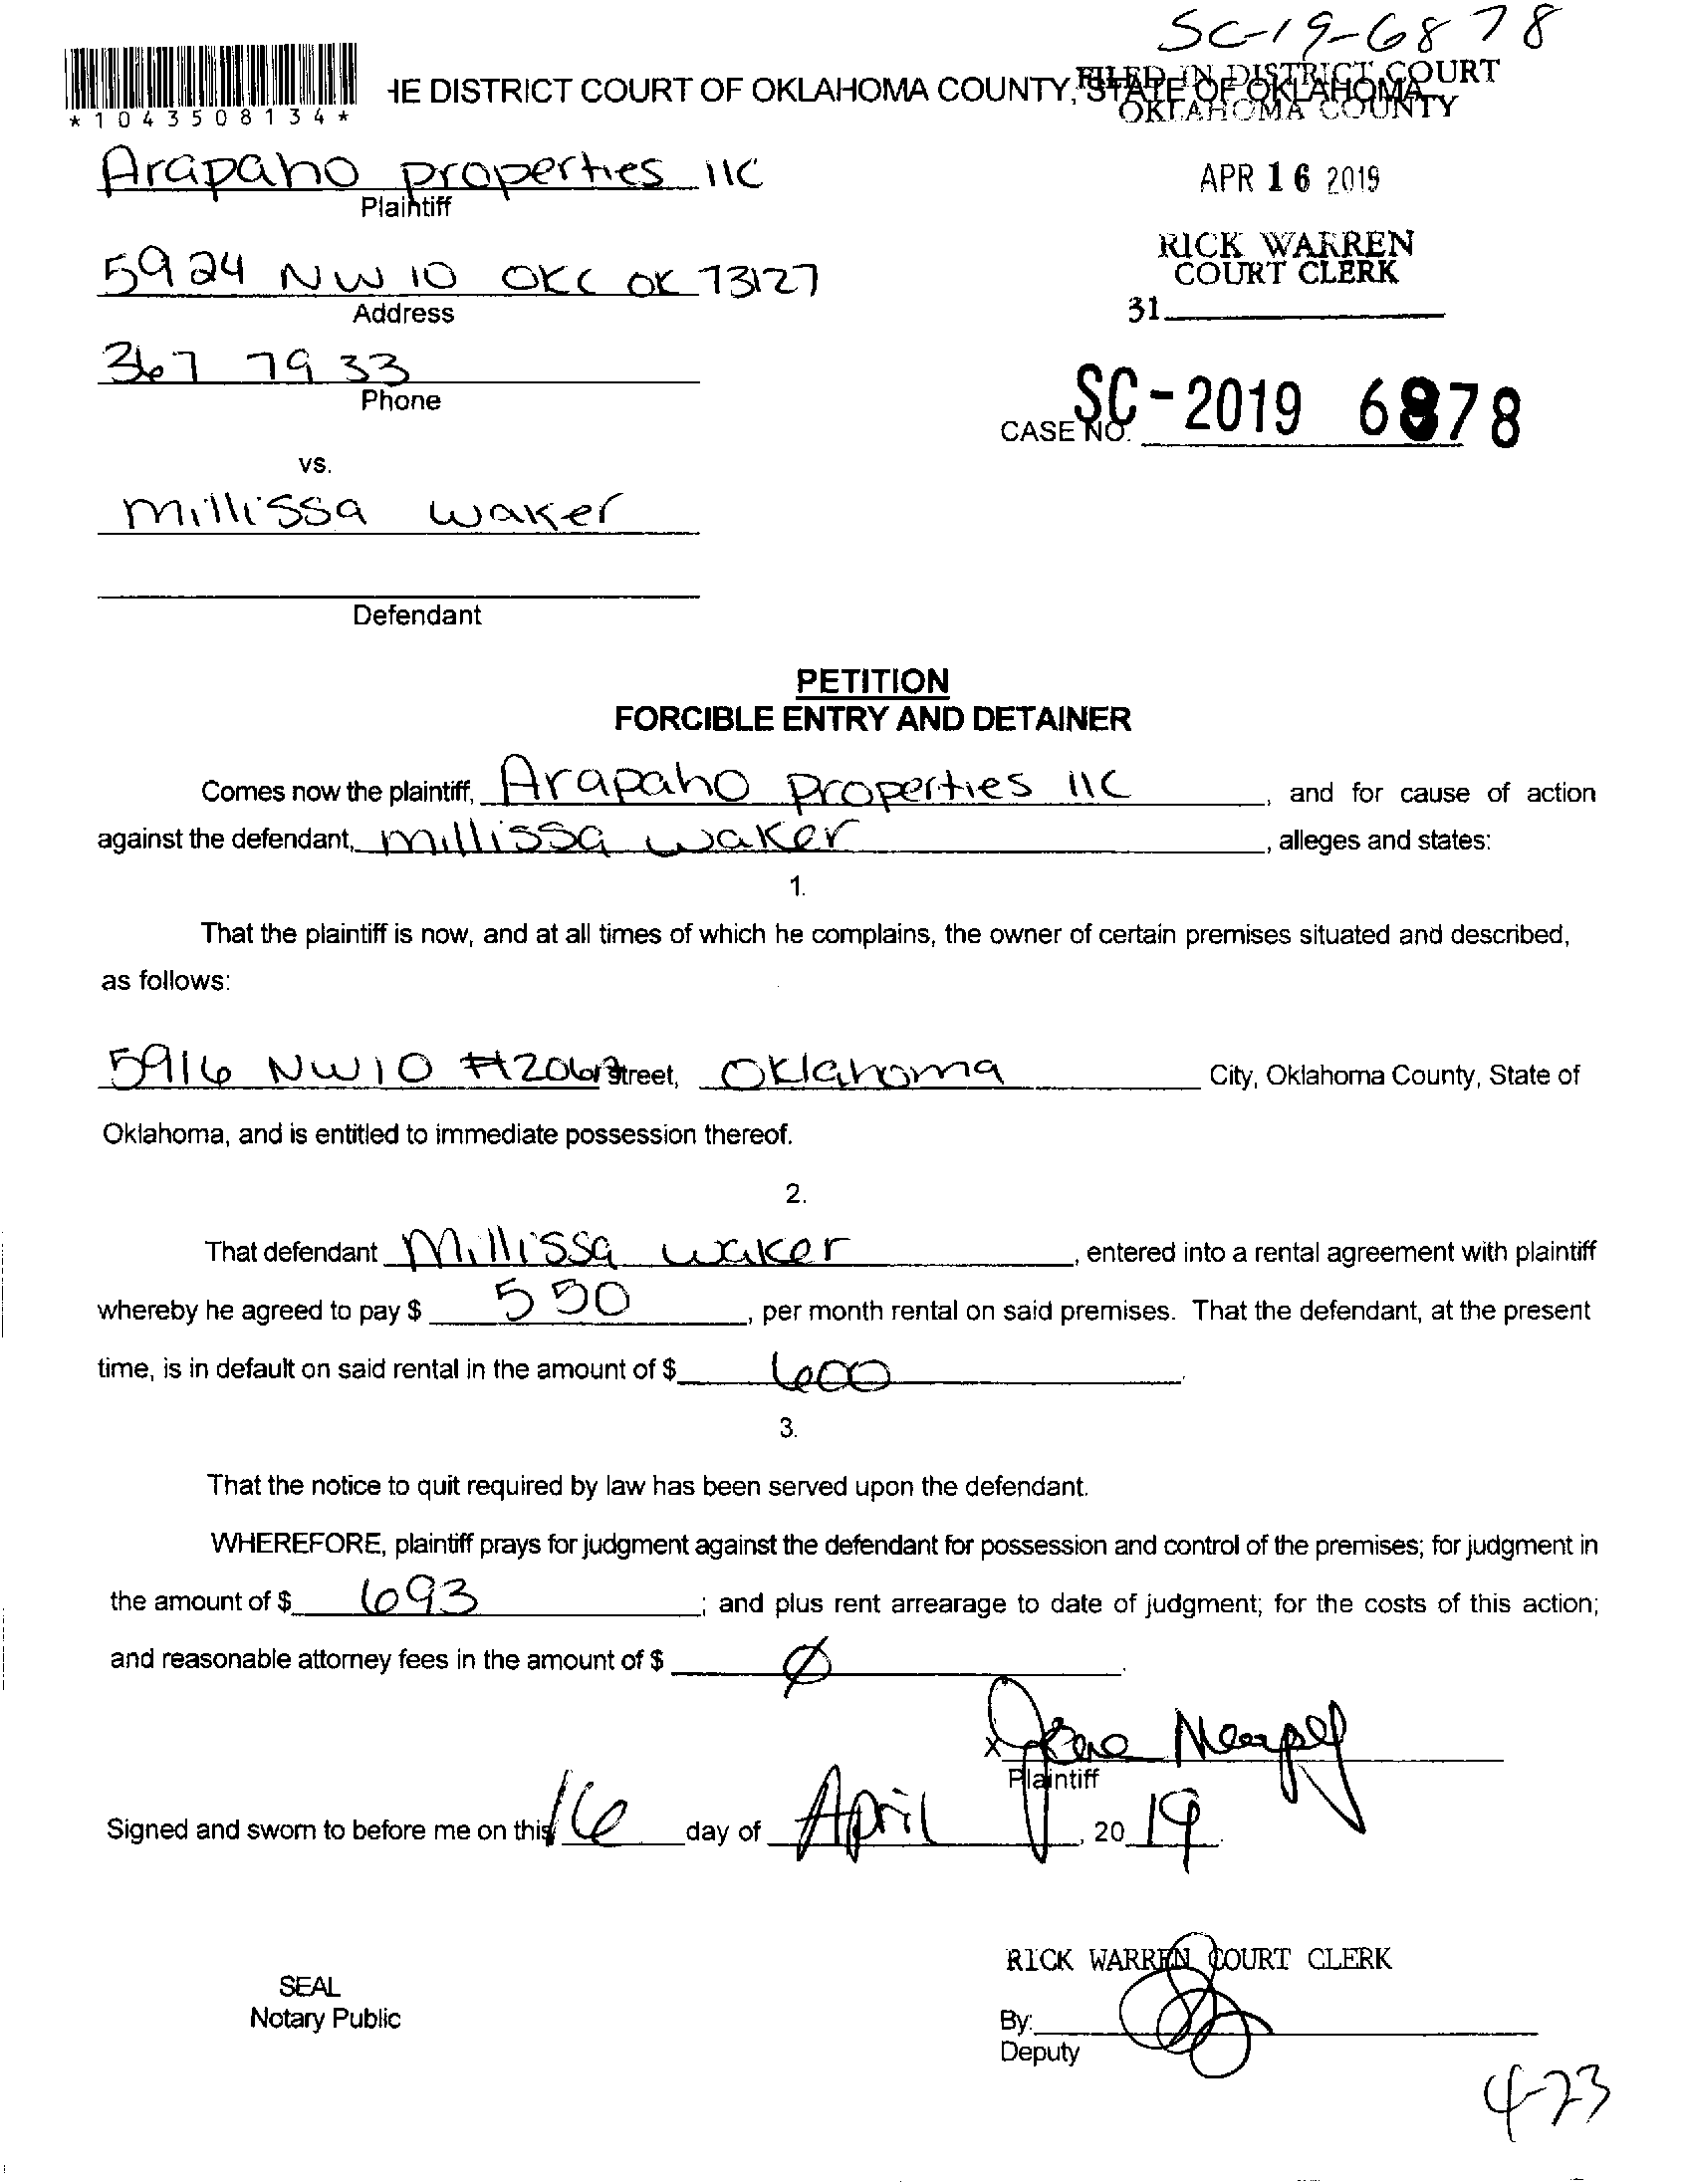 SC-19-6878
HE DISTRICT COURT OF OKLAHOMA COUNTY, STATE OF OKLAHOMA
FILED IN DISTRICT COURT
OKLAHOMA COUNTY
*1043508134*
Arapaho properties llc
Plaintiff
APR 16 2019
RICK WARREN
COURT CLERK
5924 NW 10 OKC OK 73127
Address
31
367 7933
Phone
CASE NO. SC-2019 6878
vs.
millissa waker
Defendant
PETITION
FORCIBLE ENTRY AND DETAINER
Comes now the plaintiff, Arapaho properties llc, and for cause of action
against the defendant, millissa waker, alleges and states:
1.
That the plaintiff is now, and at all times of which he complains, the owner of certain premises situated and described,
as follows:
5916 NW 10 #206 Street, Oklahoma City, Oklahoma County, State of
Oklahoma, and is entitled to immediate possession thereof.
2.
That defendant Millissa waker, entered into a rental agreement with plaintiff
whereby he agreed to pay $ 550, per month rental on said premises. That the defendant, at the present
time, is in default on said rental in the amount of $ 600.
3.
That the notice to quit required by law has been served upon the defendant.
WHEREFORE, plaintiff prays for judgment against the defendant for possession and control of the premises; for judgment in
the amount of $ 693; and plus rent arrearage to date of judgment; for the costs of this action;
and reasonable attorney fees in the amount of $ Ø.
X
Plaintiff
Signed and sworn to before me on this 16 day of April, 2019.
RICK WARREN COURT CLERK
SEAL
Notary Public
By:
Deputy
4-23